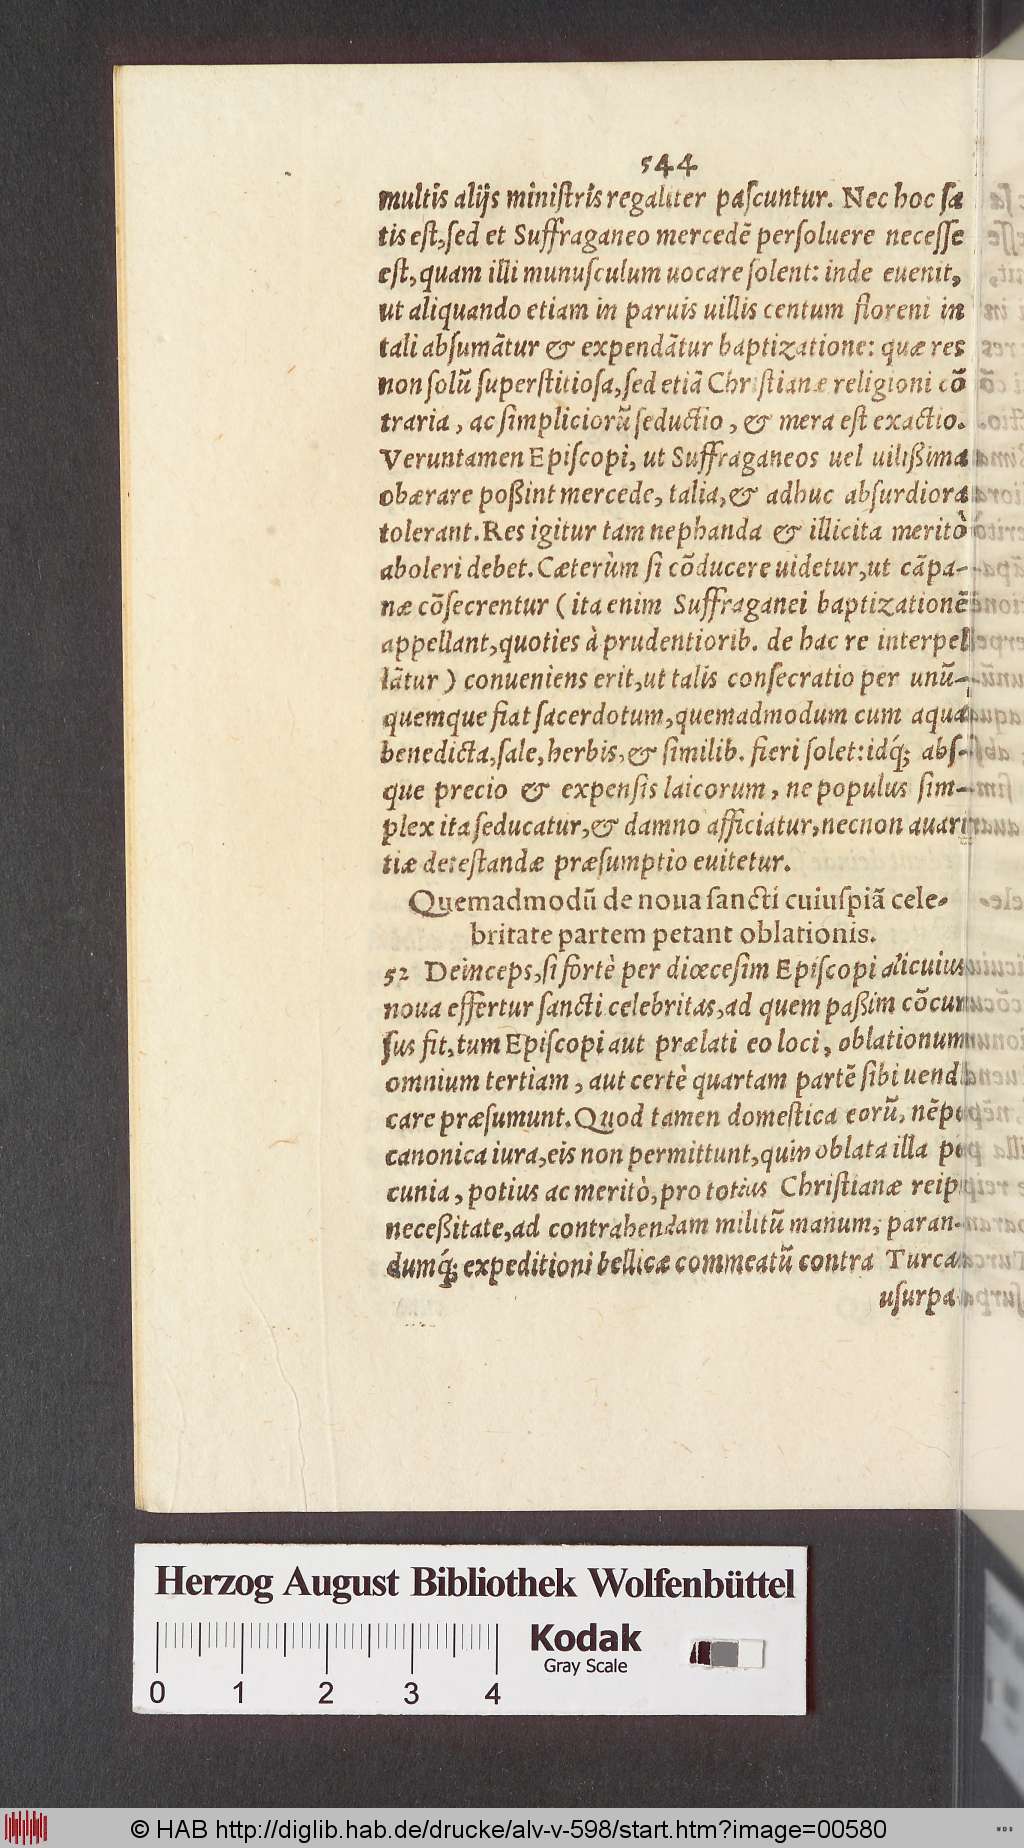 544
multis alijs miniſtris regaliter paſcuntur. Nec hoc ſa
tis eſt, ſed et Suffraganeo mercedē perſoluere neceſſe
eſt, quam illi munuſculum uocare ſolent: inde euenit,
ut aliquando etiam in paruis uillis centum floreni in
tali abſumātur & expendātur baptizatione: quæ res
non ſolū ſuperſtitioſa, ſed etiā Chriſtianæ religioni cō
traria, ac ſimpliciorū ſeductio, & mera eſt exactio.
Veruntamen Epiſcopi, ut Suffraganeos uel uilißima
obærare poßint mercede, talia, & adhuc abſurdiora
tolerant. Res igitur tam nephanda & illicita meritò
aboleri debet. Cæterùm ſi cōducere uidetur, ut cāpa-
næ cōſecrentur (ita enim Suffraganei baptizationē
appellant, quoties à prudentiorib. de hac re interpel
lātur) conueniens erit, ut talis conſecratio per unū-
quemque fiat ſacerdotum, quemadmodum cum aqua
benedicta, ſale, herbis, & ſimilib. fieri ſolet: idq́; abſ-
que precio & expenſis laicorum, ne populus ſim-
plex ita ſeducatur, & damno afficiatur, necnon auari
tiæ deteſtandæ præſumptio euitetur.
Quemadmodū de noua ſancti cuiuſpiā cele-
britate partem petant oblationis.
52 Deinceps, ſi fortè per diœceſim Epiſcopi alicuius
noua effertur ſancti celebritas, ad quem paßim cōcur
ſus fit, tum Epiſcopi aut prælati eo loci, oblationum
omnium tertiam, aut certè quartam partē ſibi uendi
care præſumunt. Quod tamen domeſtica eorū, nēpe
canonica iura, eis non permittunt, quin oblata illa pe
cunia, potius ac meritò, pro totius Chriſtianæ reip
neceßitate, ad contrahendam militū manum, paran-
dumq́; expeditioni bellicæ commeatū contra Turcas
uſurpa
Herzog August Bibliothek Wolfenbüttel
Kodak
Gray Scale
0 1 2 3 4
© HAB http://diglib.hab.de/drucke/alv-v-598/start.htm?image=00580